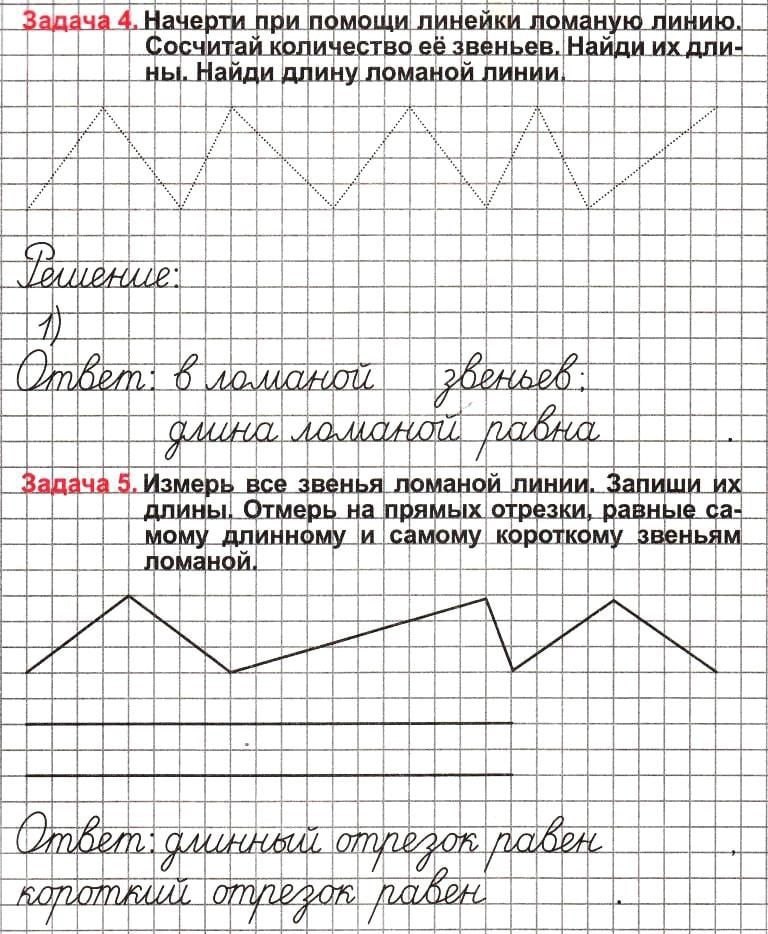 Задача 4. Начерти при помощи линейки ломаную линию.
Сосчитай количество её звеньев. Найди их дли-
ны. Найди длину ломаной линии.
Решение:
1)
Ответ: в ломаной звеньев;
длина ломаной равна .
Задача 5. Измерь все звенья ломаной линии. Запиши их
длины. Отмерь на прямых отрезки, равные са-
мому длинному и самому короткому звеньям
ломаной.
Ответ: длинный отрезок равен ,
короткий отрезок равен .